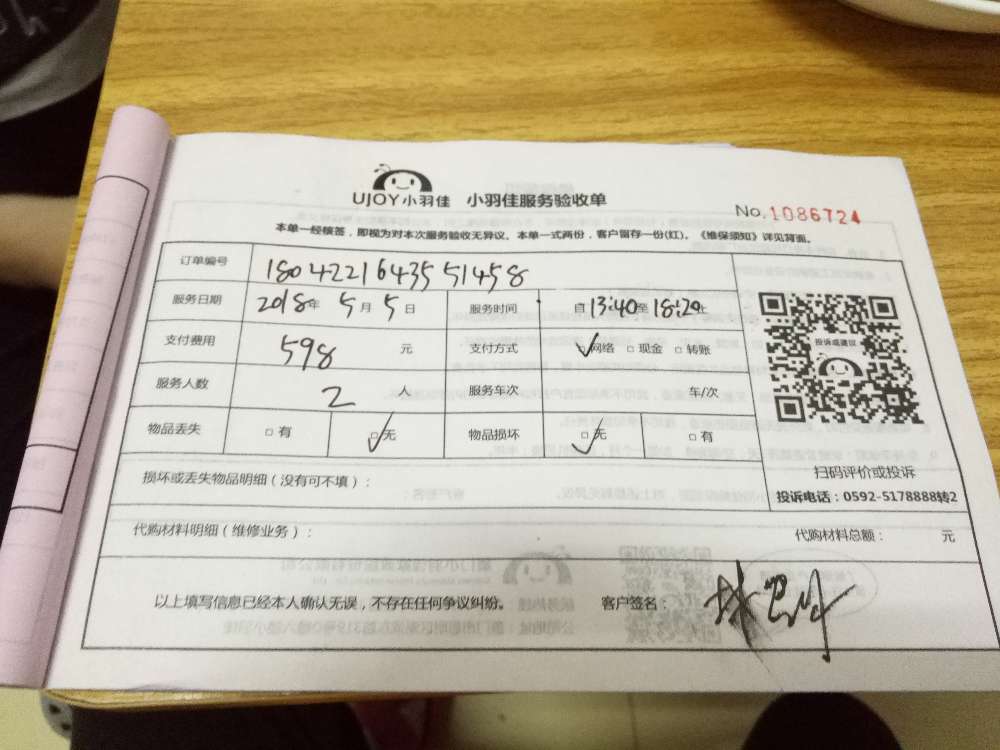 UJOY小羽佳 小羽佳服务验收单
No. 1086724
本单一经核签，即视为对本次服务验收无异议。本单一式两份，客户留存一份(红)。《维保须知》详见背面。
订单编号 1804221643551458
服务日期 2018年 5月 5日 服务时间 自13:40至18:20止
支付费用 598 元 支付方式 ☑网络 □现金 □转账
服务人数 2 人 服务车次 车/次
物品丢失 □有 ☑无 物品损坏 ☑无 □有
投诉或建议
扫码评价或投诉
投诉电话：0592-5178888转2
损坏或丢失物品明细（没有可不填）：
代购材料明细（维修业务）： 代购材料总额： 元
以上填写信息已经本人确认无误，不存在任何争议纠纷。 客户签名：